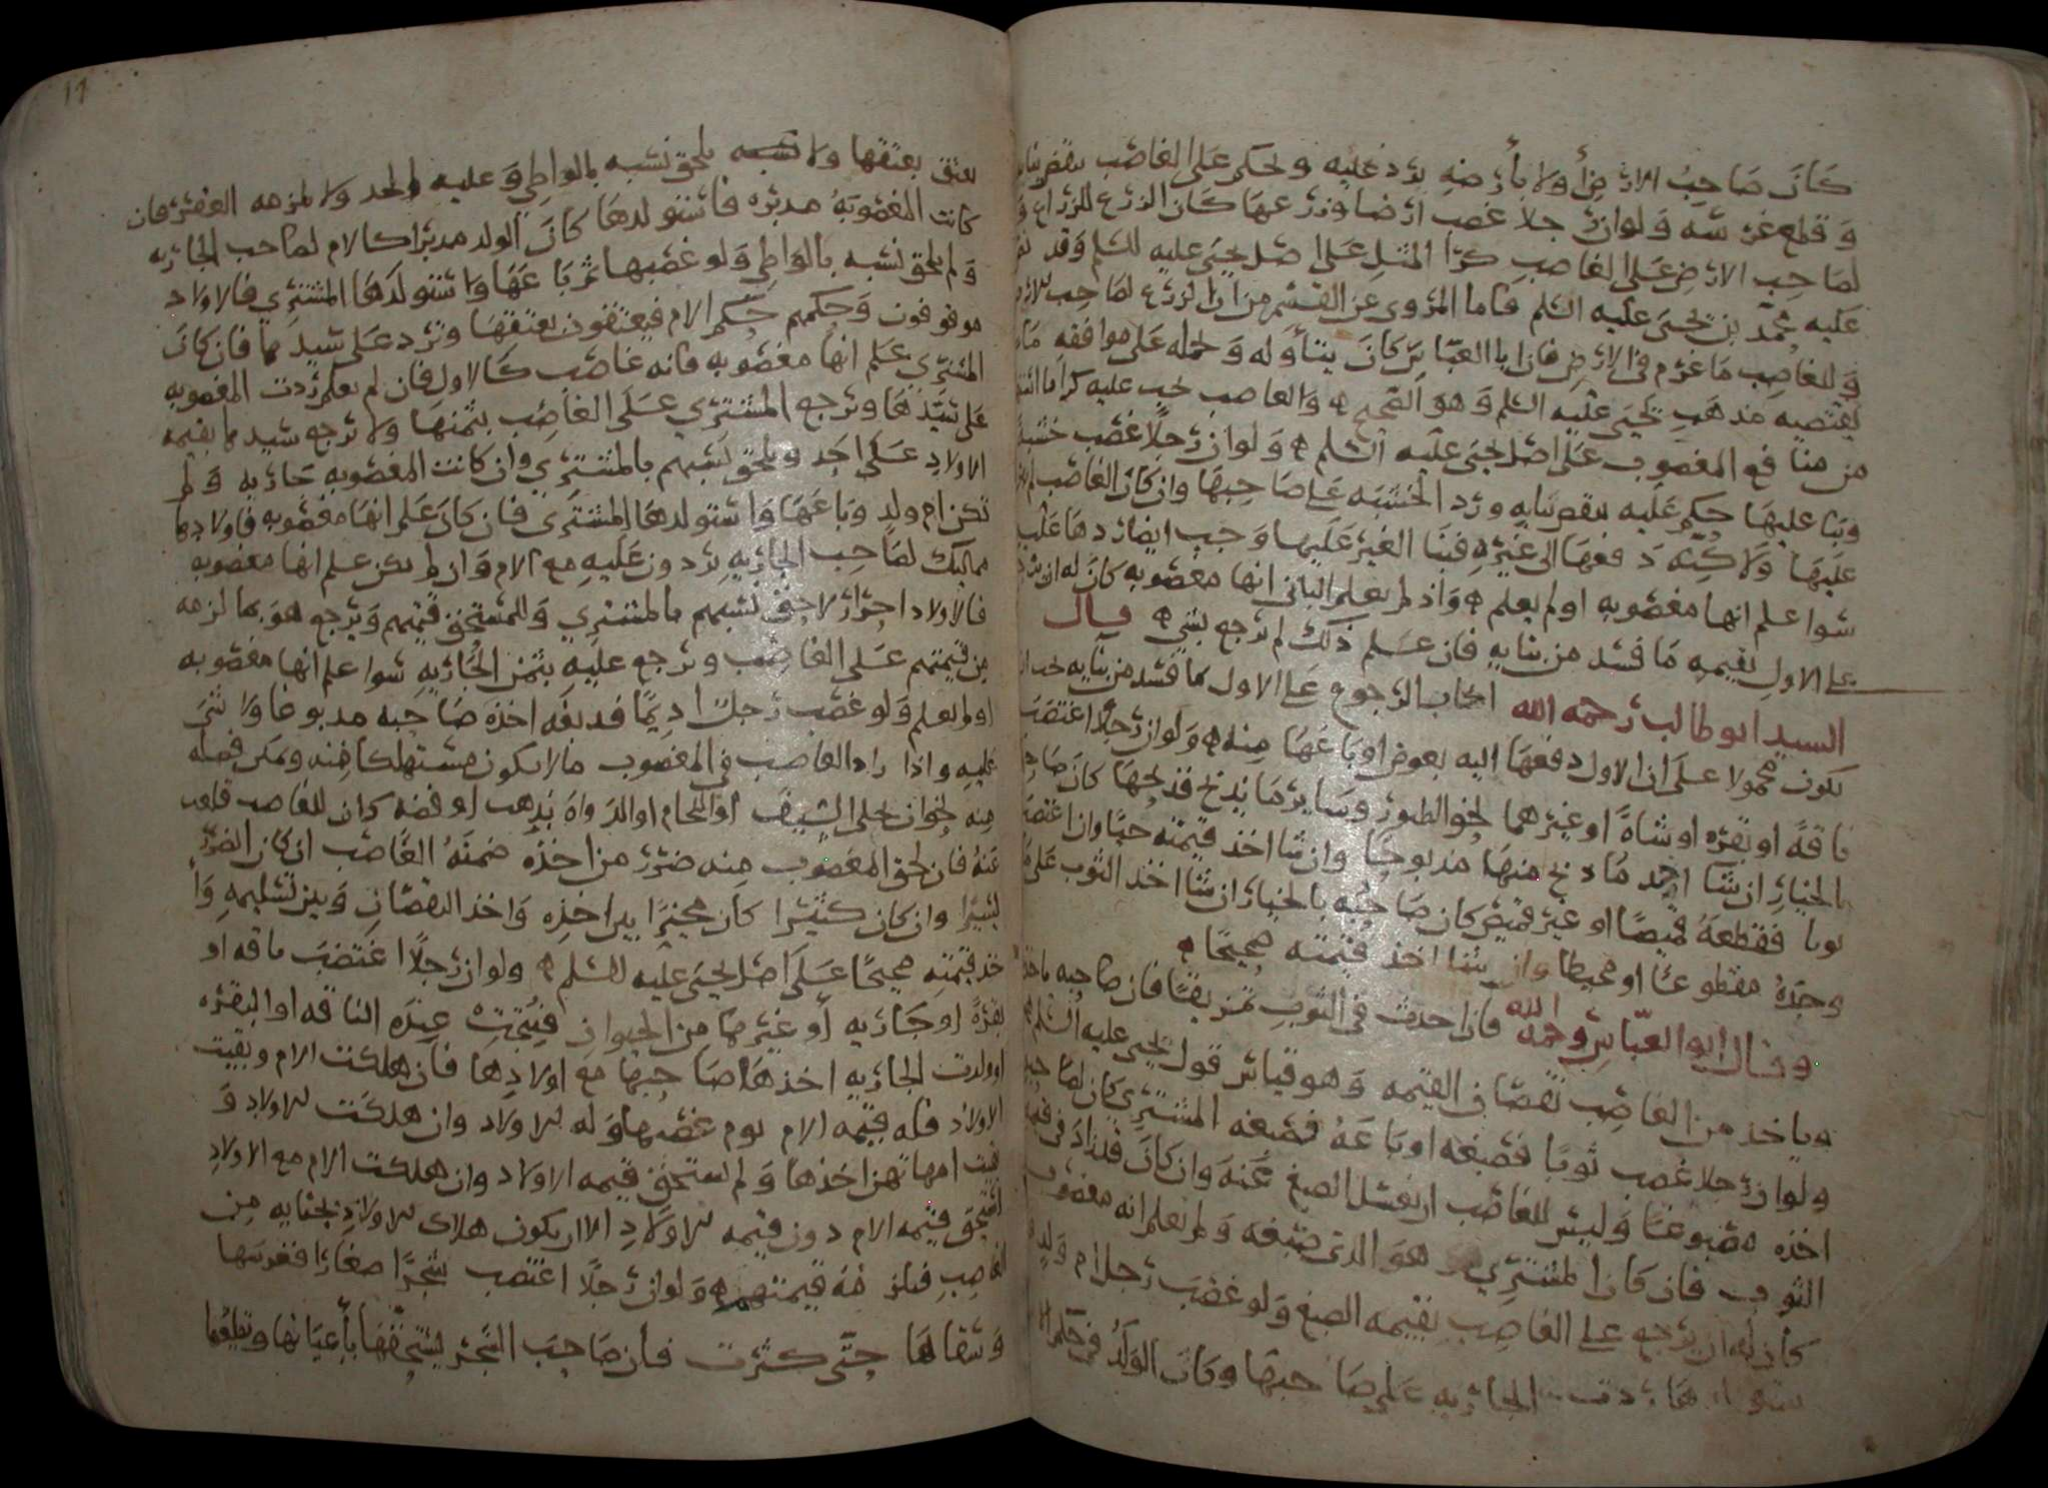 كان صاحب الارض أولا بأرضه يرد عليه ويحكم على الغاصب بنقض بنايه
وقلع غرسه ولو ان رجلا غصب ارضا وزرعها كان الزرع للزراع و
لصاحب الارض على الغاصب كرا المثل على اصل يحيى عليه السلم وقد نص
عليه محمد بن يحيى عليه السلم فاما المروى عن القسم من ان الزرع لصاحب الارض
وللغاصب ما غرم في الارض فان ابا العباس كان يتأوله وحمله على موافقه ما
يقتضيه مذهب يحيى عليه السلم وهو الصحيح والغاصب يجب عليه كرا ما
من منافع المغصوب على اصل يحيى عليه السلم ولو ان رجلا غصب خشبة
وبنا عليها حكم عليه بنقض بنايه ورد الخشبه على صاحبها وان كان الغاصب لم يبن
عليها ولاكنه دفعها الى غيره فبنا الغير عليها وجب ايضا ردها على
سوا علم انها مغصوبه او لم يعلم واذ لم يعلم الباني انها مغصوبه كان له ان يرجع
على الاول بقيمه ما فسد من بنايه فان علم ذلك لم يرجع بشي قال
السيد ابو طالب رحمه الله ايجاب الرجوع على الاول بما فسد من بنايه يجب ان
يكون محمولا على ان الاول دفعها اليه بعوض او باعها منه ولو ان رجلا اغتصب
ناقة او بقره او شاة او غيرهما نحو الطيور وساير ما يذبح فذبحها كان صاحبها
بالخيار ان شا اخذ ما ذبح منها مذبوحا وان شا اخذ قيمته حيا وان اغتصب
ثوبا فقطعه قميصا او غير قميص كان صاحبه بالخيار ان شا اخذ الثوب على ما
وجده مقطوعا او مخيطا وان شا اخذ قيمته صحيحا
وقال ابو العباس رحمه الله فان احدث في الثوب تمزيقا فان صاحبه ياخذه
وياخذ من الغاصب نقصان القيمه وهو قياس قول يحيى عليه السلم
ولو ان رجلا غصب ثوبا فصبغه او باعه فصبغه المشتري كان لصاحبه
اخذه مصبوغا وليس للغاصب ان يغسل الصبغ عنه وان كان قد زاد في قيمه
الثوب فان كان المشتري هو الذي صبغه ولم يعلم انه مغصوب
كان له ان يرجع على الغاصب بقيمه الصبغ ولو غصب رجل ام ولد
ردت الجاريه على صاحبها وكان الولد في حكم الام
يعتق بعتقها ولا يلحق نسبه بالواطي وعليه الحد ولا يلزمه العقر فان
كانت المغصوبه مدبره فاستولدها كان الولد مدبرا كالام لصاحب الجاريه
ولم يلحق نسبه بالواطي ولو غصبها ثم باعها واستولدها المشتري فالاولاد
موقوفون وحكمهم حكم الام فيعتقون بعتقها وترد على سيدها فان كان
المشتري علم انها مغصوبه فانه غاصب كالاول فان لم يعلم ردت المغصوبه
على سيدها ويرجع المشتري على الغاصب بثمنها ولا يرجع سيدها بقيمه
الاولاد على احد ويلحق نسبهم بالمشتري وان كانت المغصوبه جاريه ولم
تكن ام ولد وباعها واستولدها المشتري فان كان علم انها مغصوبه فاولادها
مماليك لصاحب الجاريه يردون عليه مع الام وان لم يكن علم انها مغصوبه
فالاولاد احرار لاحق نسبهم بالمشتري وللمستحق قيمتهم ويرجع هو بما لزمه
من قيمتهم على الغاصب ويرجع عليه بثمن الجاريه سوا علم انها مغصوبه
او لم يعلم ولو غصب رجل اديما فدبغه اخذه صاحبه مدبوغا ولا شي
عليه واذا زاد الغاصب في المغصوب مالا يكون مستهلكا فيه ويمكن فصله
منه نحو ان يحلي السيف او اللجام او الدواه بذهب او فضه كان للغاصب قلعه
عنه فان لحق المغصوب منه ضرر من اخذه ضمنه الغاصب ان كان الضرر
يسيرا وان كان كثيرا كان مخيرا بين اخذه واخذ النقصان وبين تسليمه وا
خذ قيمته صحيحا على اصل يحيى عليه السلم ولو ان رجلا اغتصب ناقه او
بقرة او جاريه أو غيرها من الحيوان فنتجت عنده الناقه او البقره
او ولدت الجاريه اخذها صاحبها مع اولادها فان هلكت الام وبقيت
الاولاد فله قيمه الام يوم غصبها وله الاولاد وان هلكت الاولاد و
بقيت امهاتهن اخذها ولم يستحق قيمه الاولاد وان هلكت الام مع الاولاد
استحق قيمه الام دون قيمه الاولاد الا ان يكون هلاك الاولاد بجنايه من
الغاصب فيلزمه قيمتهم ولو ان رجلا اغتصب شجرا صغارا فغرسها
وسقاها حتى كثرت فان صاحب الشجر يستحقها بأعيانها ويقلعها